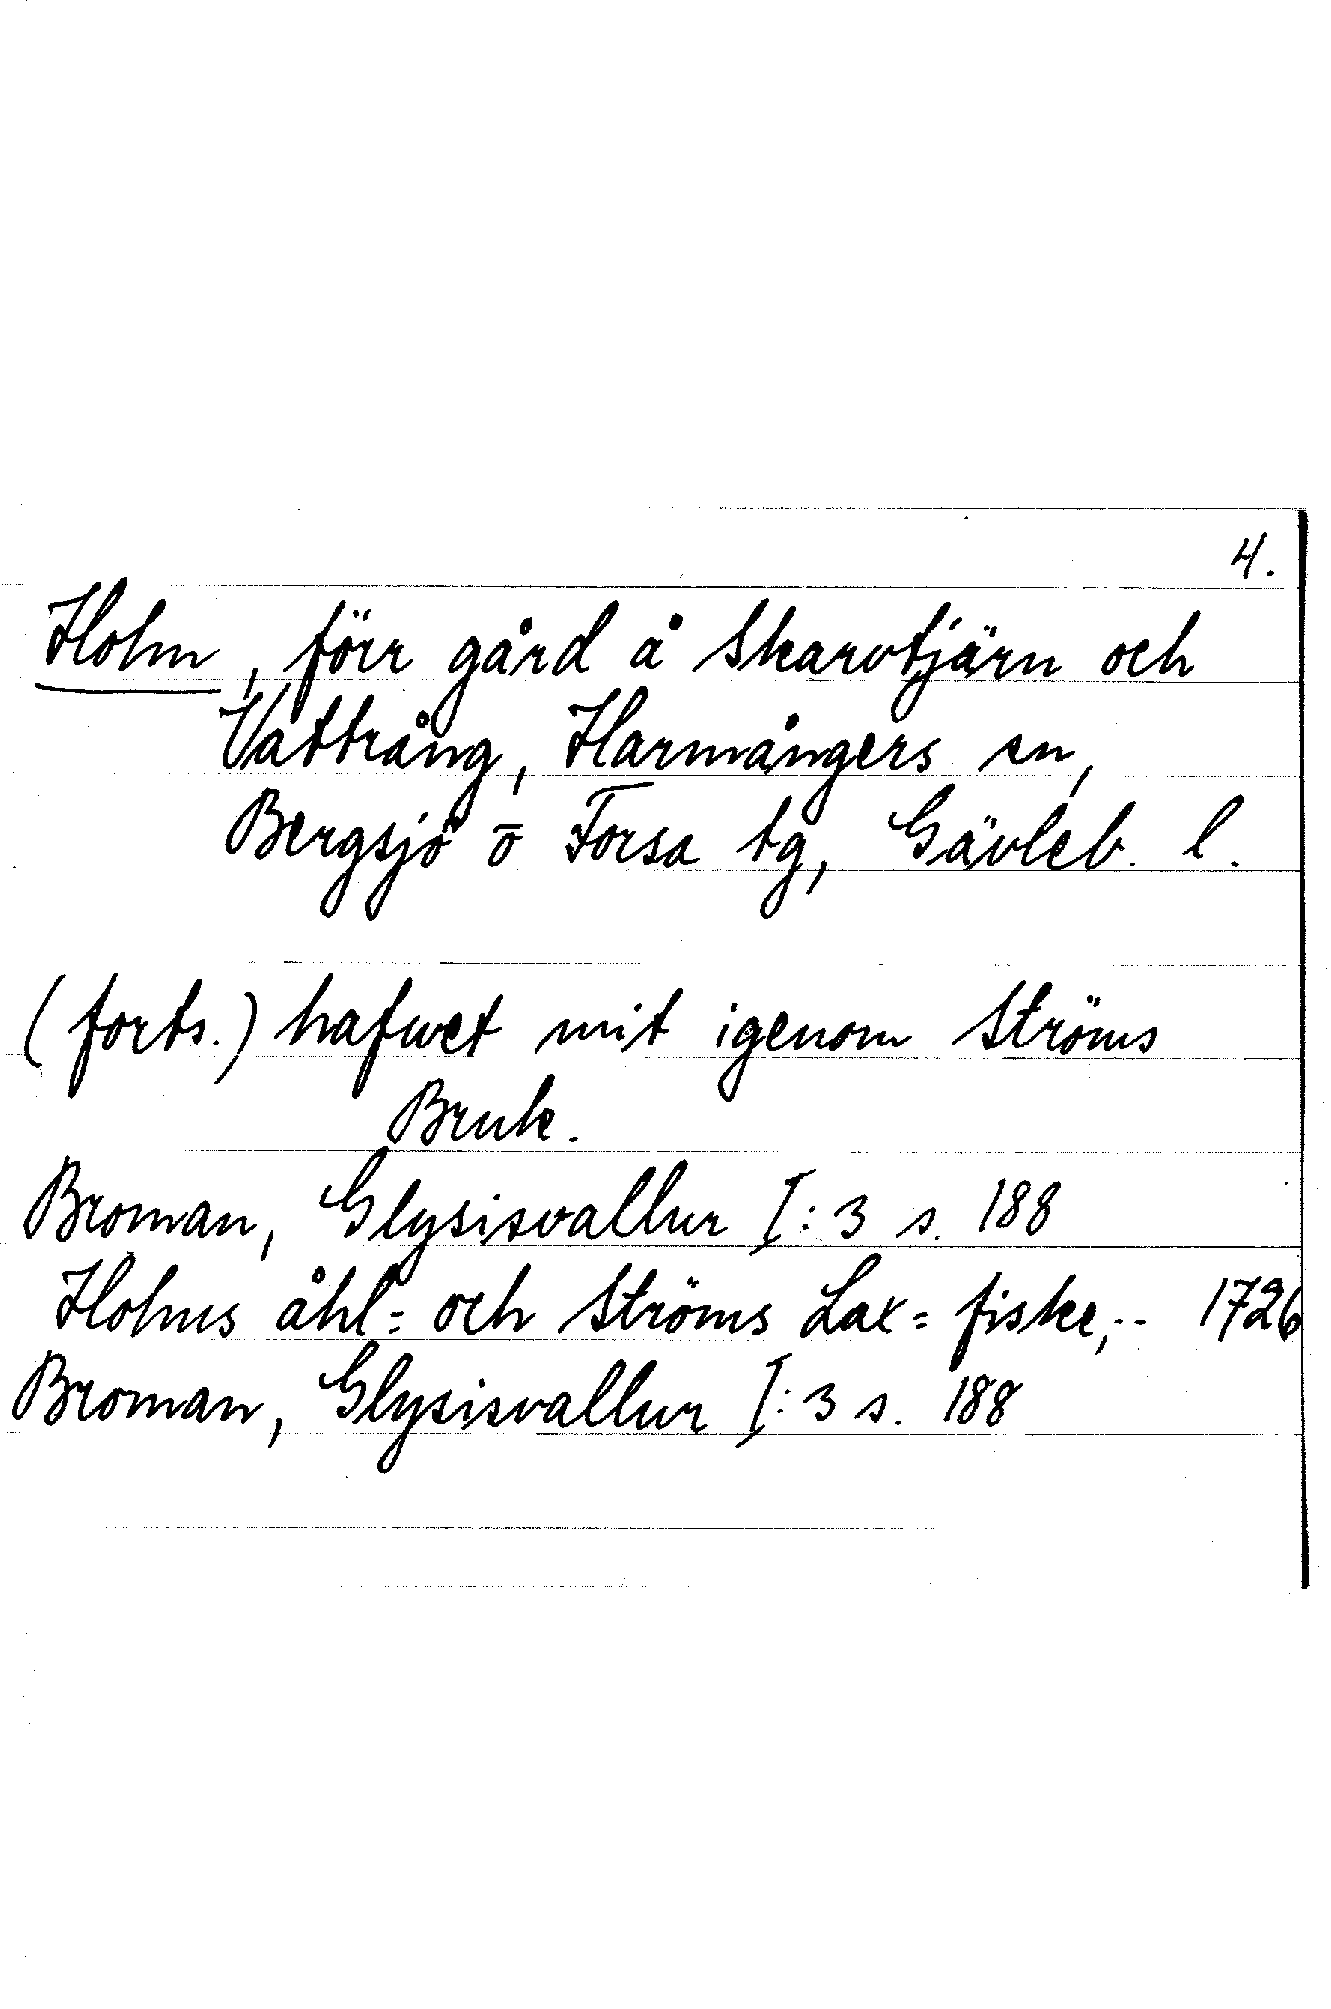 4.
Holm, förr gård å Skarvtjärn och
Vattrång, Harmångers sn,
Bergsjö o Forsa tg, Gävleb. l.
(forts.) hafwet mit igenom Ströms
Bruk.
Broman, Glysisvallur I:3 s. 188
Holms åhl= och Ströms Lax= fiske,-- 1726
Broman, Glysisvallur I:3 s. 188